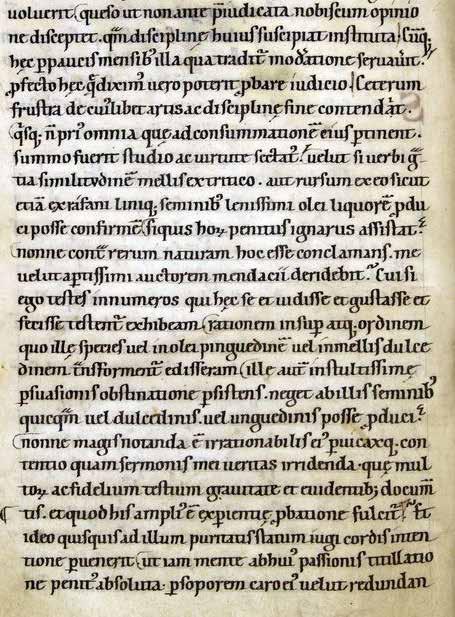 voluerit queso ut non ante p̄iudicata nobiscum opinio
ne disceptet. qm̄ disciplinę huius suscipiat instituta. Cūq;
hęc ꝑ paucis mensib; illa qua tradit̄ moderatione servaverit.
ꝓfecto hęc q̄ diximus vero poterit ꝓbare iudicio. Ceterum
frustra de cuiuslibet artis ac disciplinę fine contendat.
q̄sq; n̄ prius omnia quę ad consummationē eius ꝑtinent.
summo fuerit studio ac virtute sectatus. velut si verbi gr̄a
tia similitudinē mellis ex tritico. aut rursum ex eo sicut
etiā ex rafani liniq; seminib; lenissimi olei liquorē ꝓdu
ci posse confirmē. Siquis hoꝝ penitus ignarus assistat.
nonne contra rerum naturam hoc esse conclamans. me
velut aptissimi auctorem mendacii deridebit. Cui si
ego testes innumeros qui hęc se et vidisse et gustasse et
fecisse testent̄ exhibeam rationem insuꝑ atq; ordinem
quo illę species vel in olei pinguedinē vel in mellis dulce
dinem transforment̄ edisseram. ille aut̄ in stultissimę
ꝑsuasionis obstinatione ꝑsistens. neget ab illis seminib;
quicq̄m vel dulcedinis. vel unguedinis posse ꝓduci.
nonne magis notanda ē irrationabilis ei ꝑvicaxq; con
tentio quam sermonis mei veritas irridenda. quę mul
toꝝ ac fidelium testium gravitate et evidentib; docum̄
tis. et quod his amplius ē experientię ꝓbatione fulcit̄. Et
ideo quisquis ad illum puritatis statum iugi cordis inten
tione ꝑvenerit. ut iam mente ab huius passionis titillatio
ne penitus absoluta. ꝑ soporem caro ei velut redundan